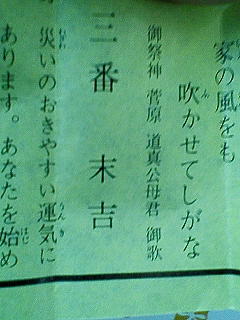 家の風をも
吹かせてしがな
御祭神 菅原 道真公母君 御歌
三番 末吉
災いのおきやすい運気に
あります。あなたを始め